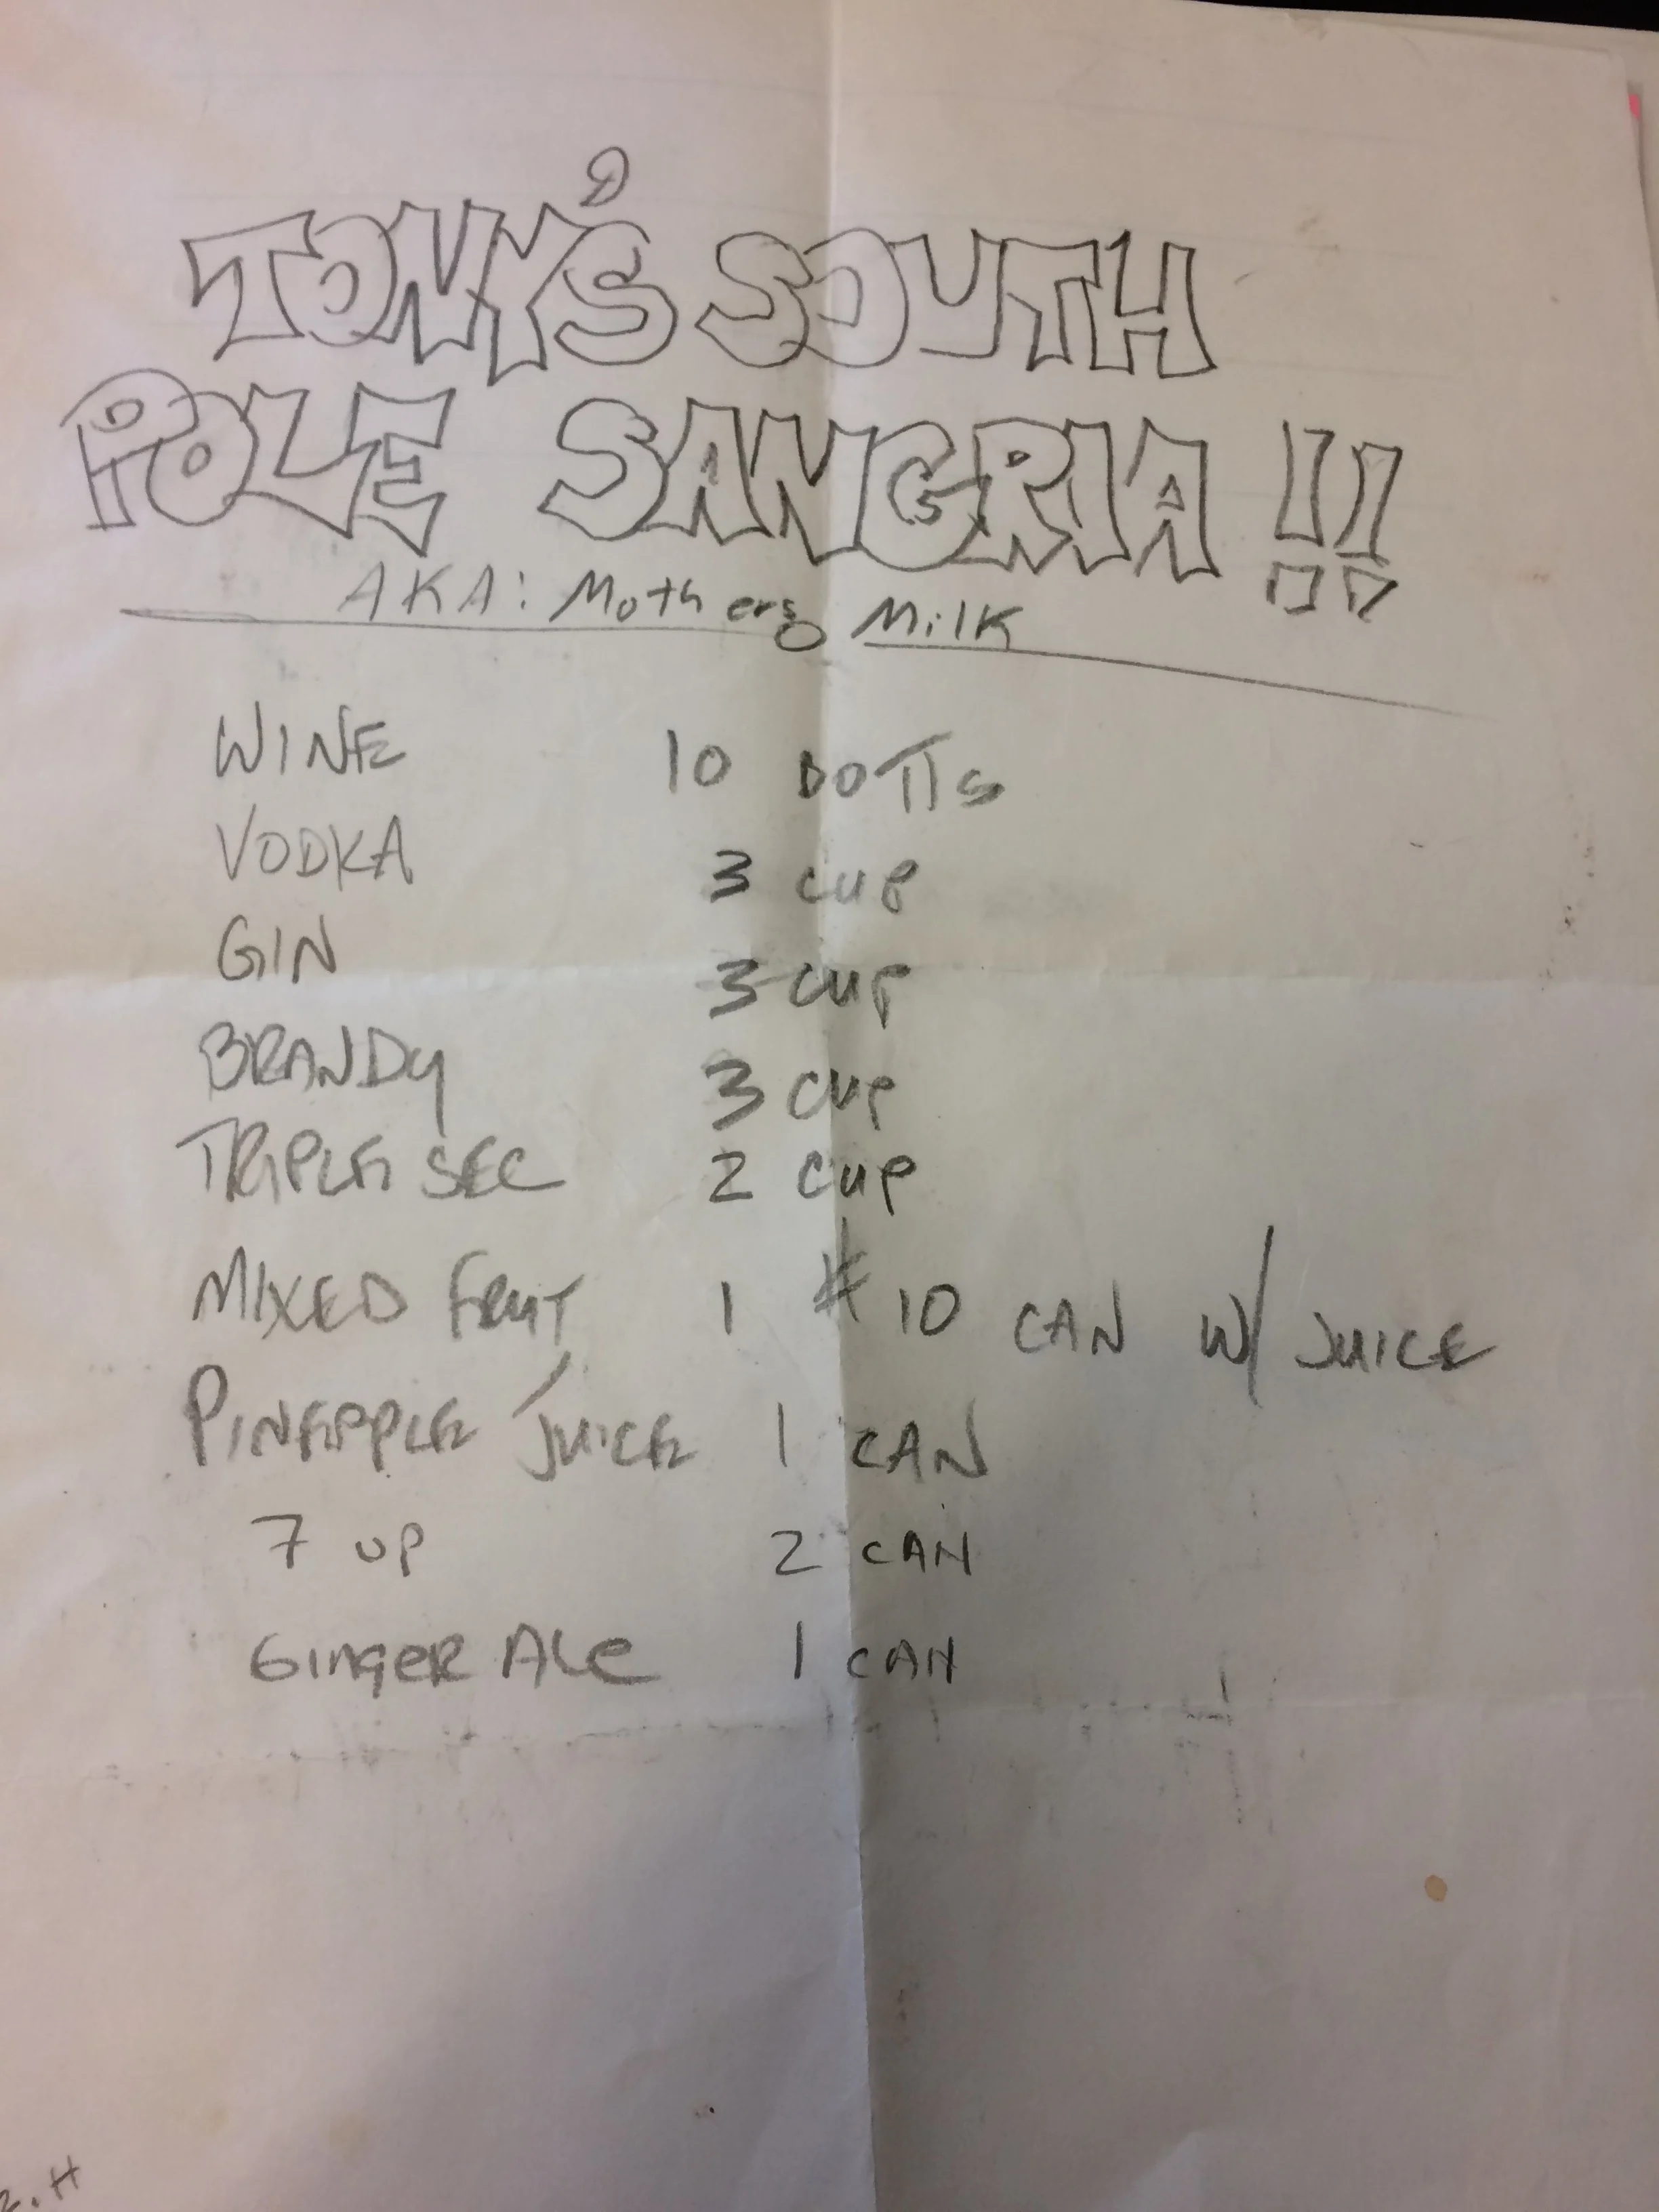 TONY'S SOUTH
POLE SANGRIA !!
AKA: Mothers Milk
WINE 10 BOTTS
VODKA 3 CUP
GIN 3 CUP
BRANDY 3 CUP
TRIPLE SEC 2 CUP
MIXED FRUIT 1 #10 CAN W/ JUICE
PINEAPPLE JUICE 1 CAN
7 UP 2 CAN
GINGER ALE 1 CAN